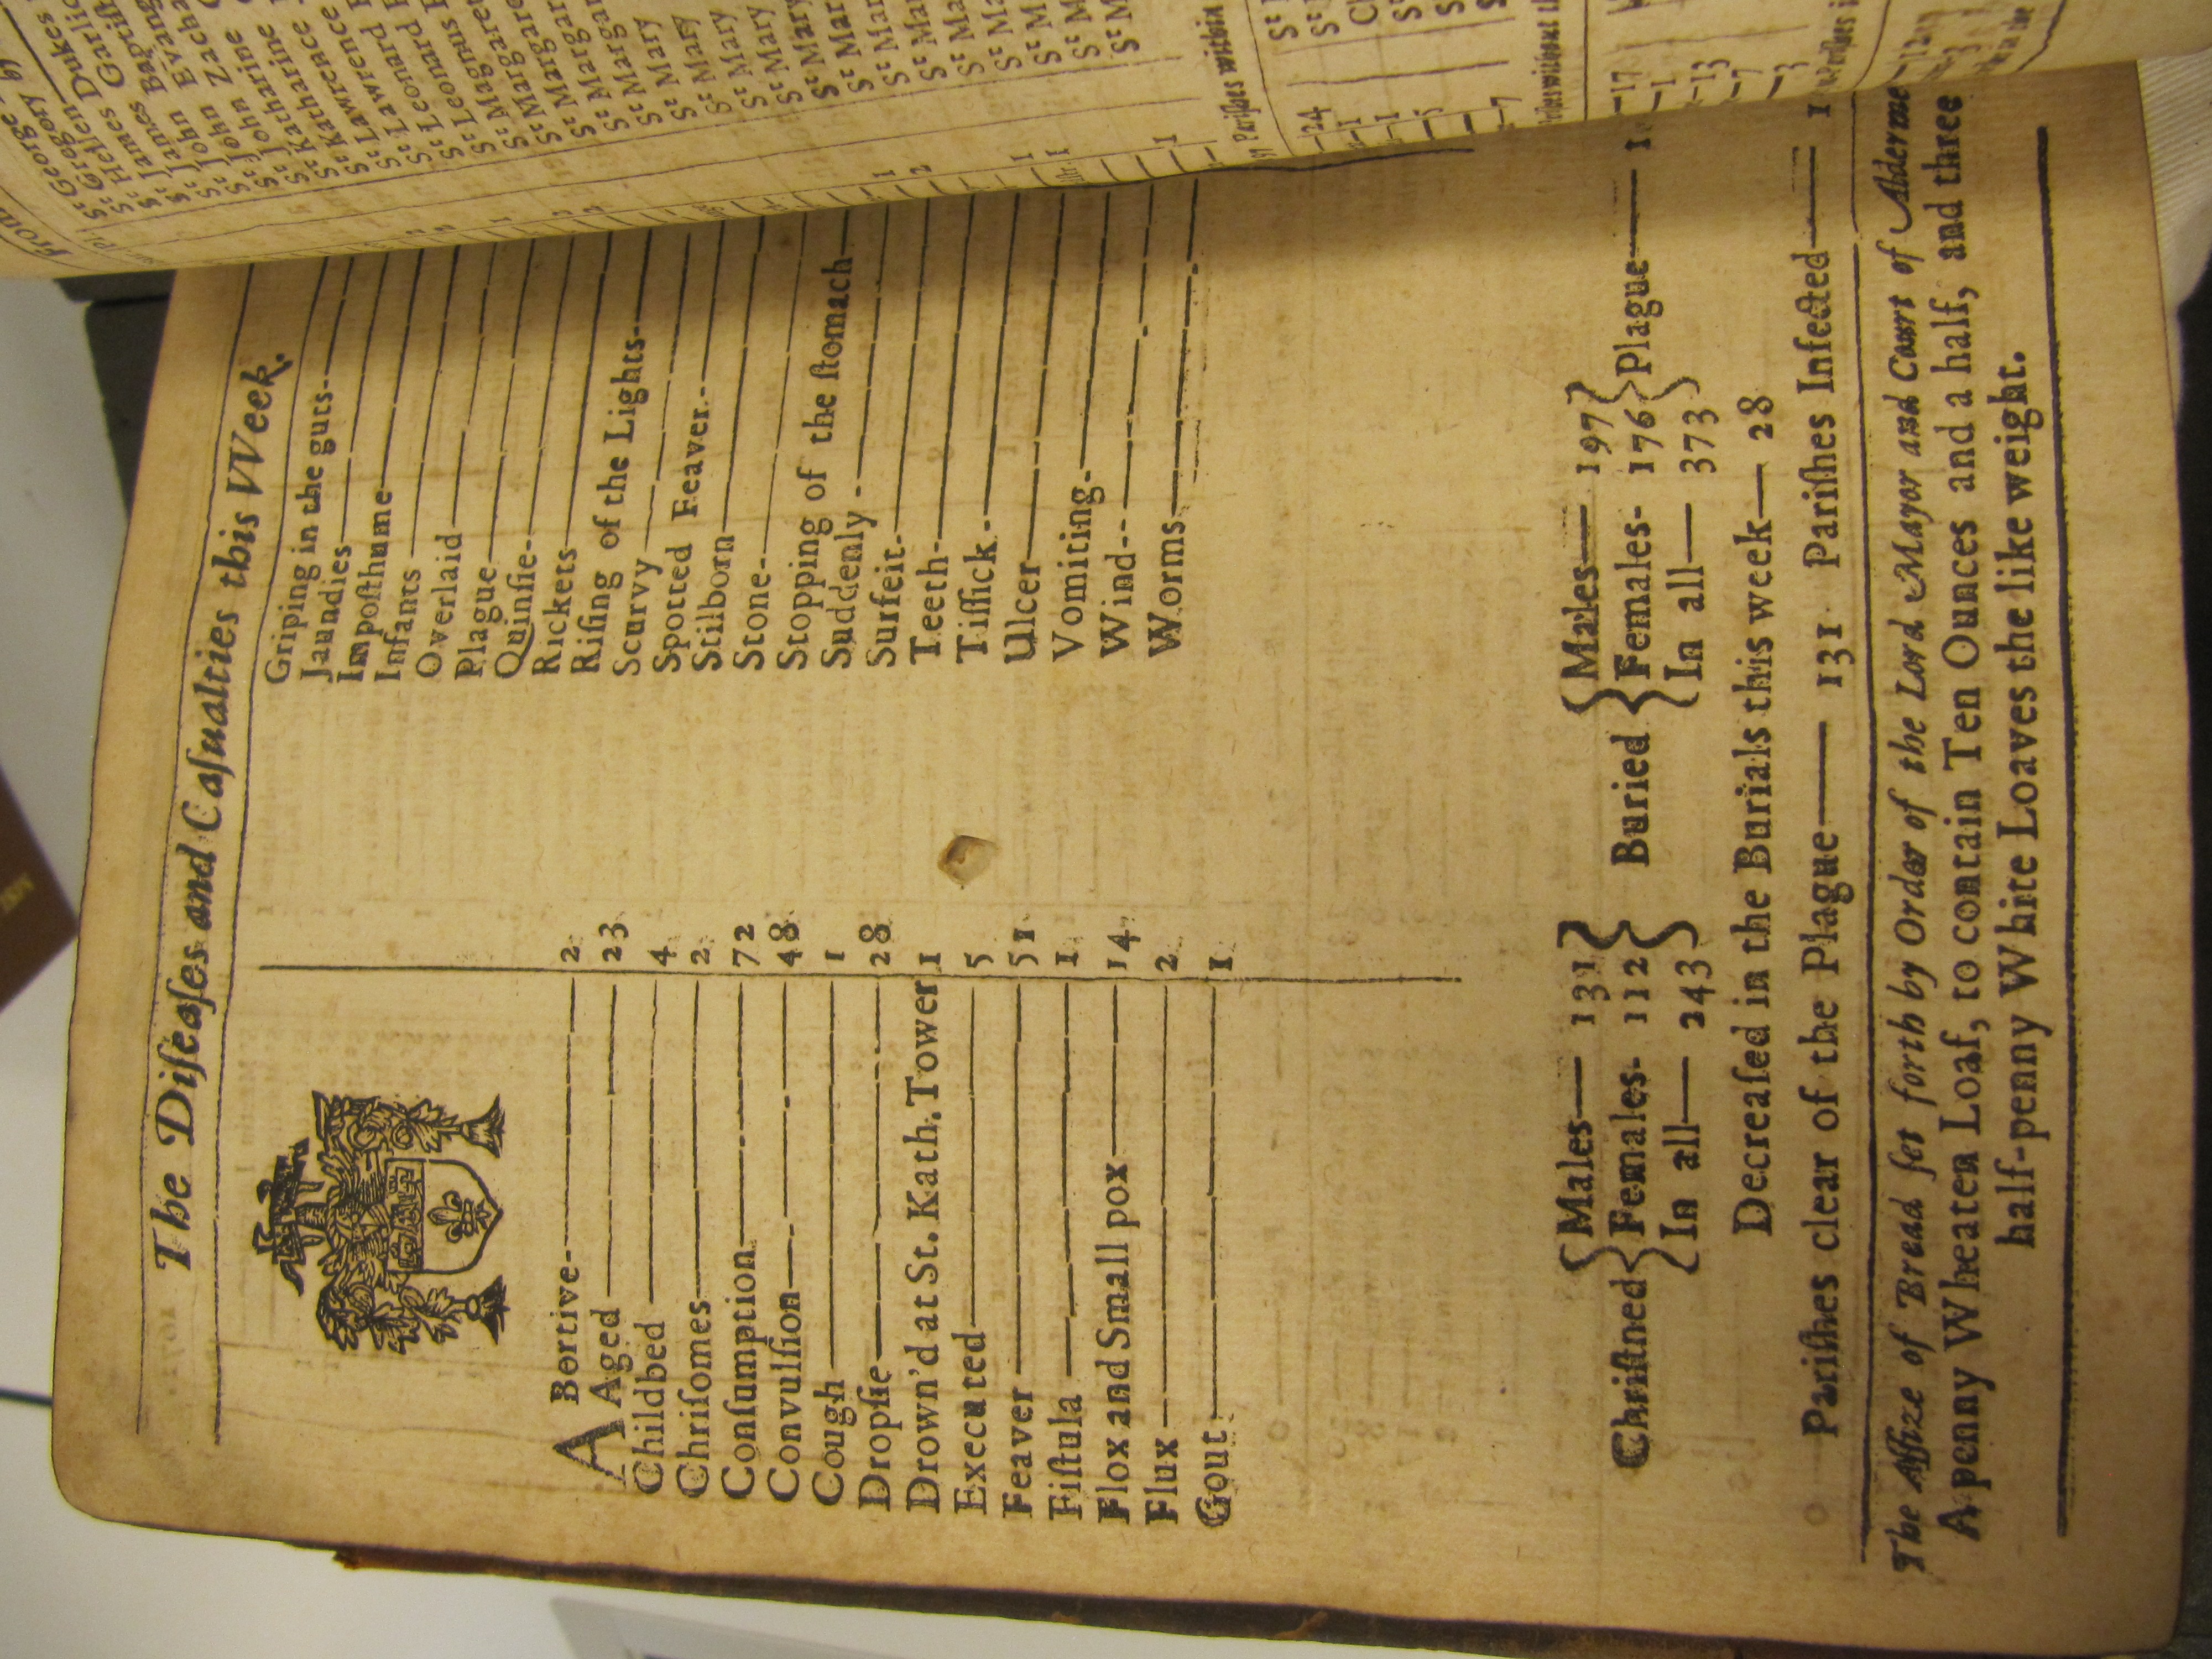 The Diſeaſes and Caſualties this VVeek.
ABortive 2
Aged 23
Childbed 4
Chriſomes 2
Conſumption 72
Convulſion 48
Cough 1
Dropſie 28
Drown'd at St. Kath. Tower 1
Executed 5
Feaver 51
Fiſtula 1
Flox and Small pox 14
Flux 2
Gout 1
Griping in the guts
Jaundies
Impoſthume
Infants
Overlaid
Plague
Quinſie
Rickets
Riſing of the Lights
Scurvy
Spotted Feaver
Stilborn
Stone
Stopping of the ſtomach
Suddenly
Surfeit
Teeth
Tiſſick
Ulcer
Vomiting
Wind
Worms
Chriſtned { Males 131
Females 112
In all 243 }
Buried { Males 197
Females 176
In all 373 }
Plague 1
Decreaſed in the Burials this week 28
Pariſhes clear of the Plague 131 Pariſhes Infected 1
The Aſſize of Bread ſet forth by Order of the Lord Mayor and Court of Alderme
A penny Wheaten Loaf, to contain Ten Ounces and a half, and three
half-penny White Loaves the like weight.
from
St George
St Gregory by
St Hellen
St James Dukes
St James Garli
St John Baptiſt
St John Evang
St John Zach
St Katharine
St Katharine
St Lawrence
St Lawrence
St Leonard E
St Leonard F
St Magnus
St Margaret
St Margare
St Margar
St Margar
St Mary
St Mary
St Mary
St Mary
St Mary
St Mary
St Mar
St Mar
St Mar
St Ma
St Ma
St M
St M
St M
97 Pariſhes within